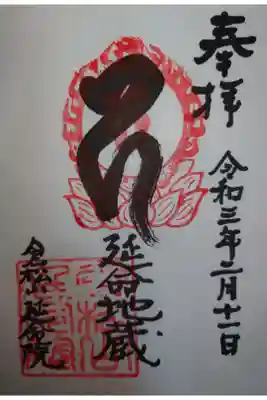 奉拝
令和三年二月十一日
延命地蔵
倉松山延命院